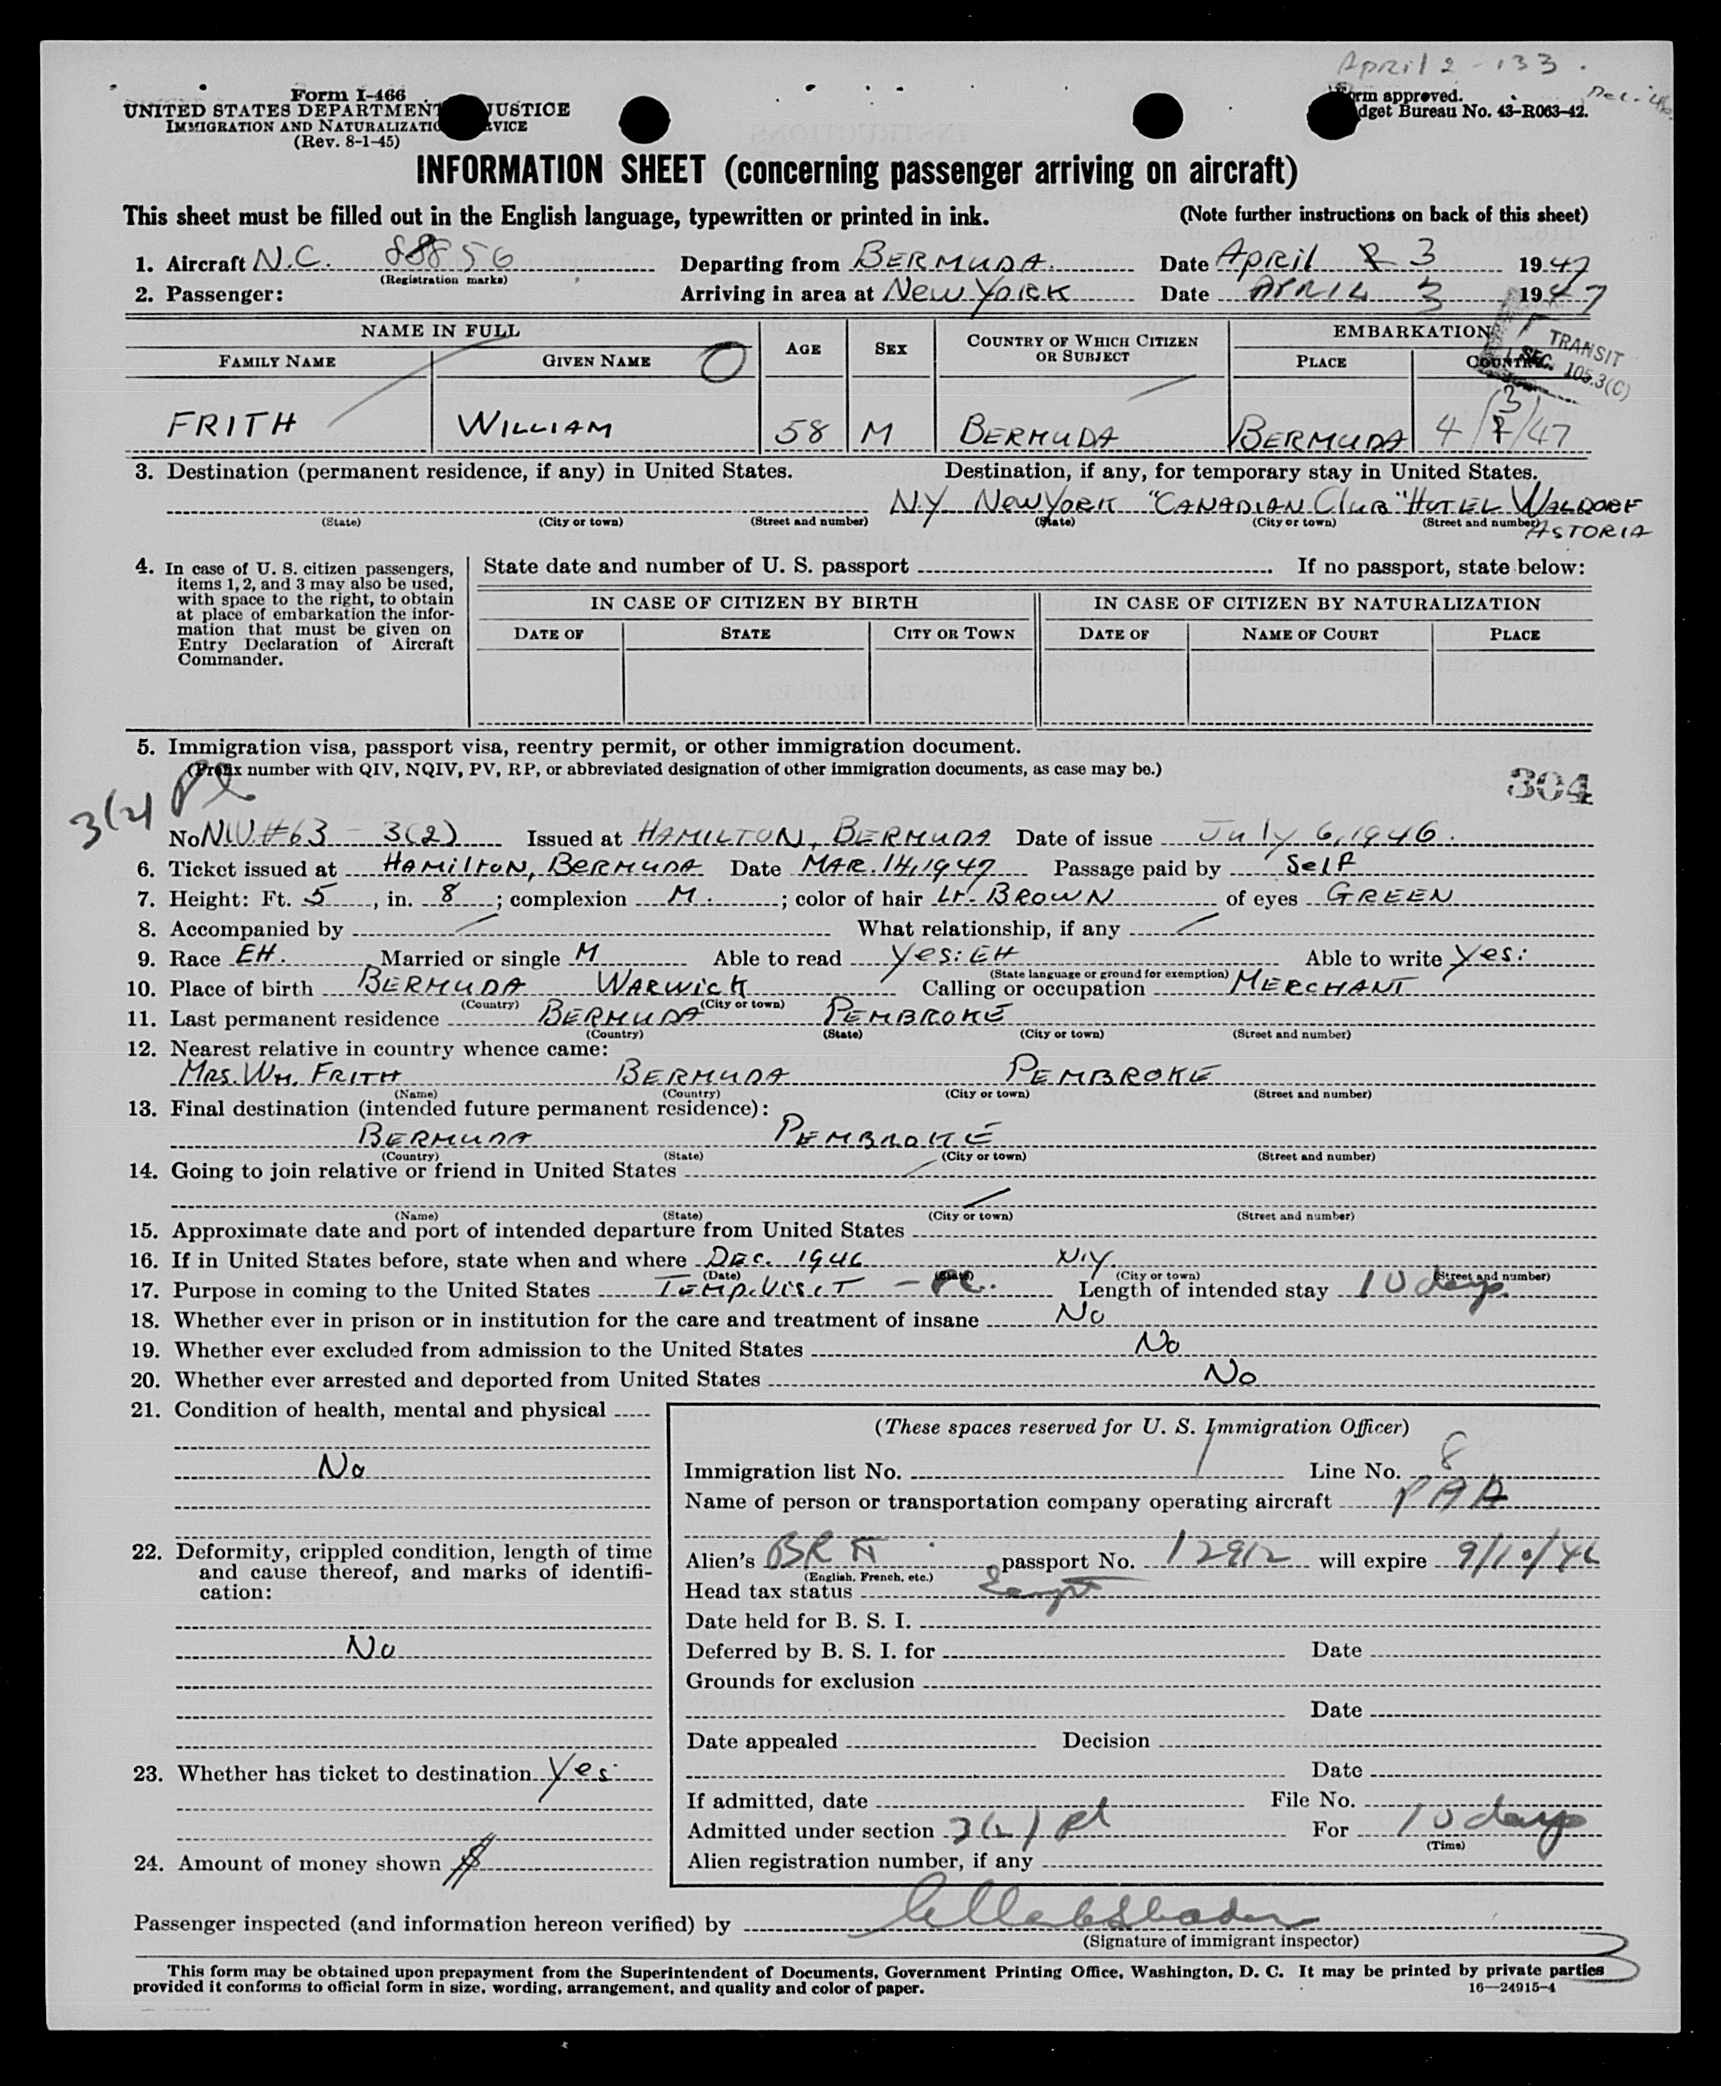 April 2 - 133.
Form I-466
UNITED STATES DEPARTMENT JUSTICE
IMMIGRATION AND NATURALIZATION SERVICE
(Rev. 8-1-45)
Form approved. Dec.-46
Budget Bureau No. 43-R063-42.
INFORMATION SHEET (concerning passenger arriving on aircraft)
This sheet must be filled out in the English language, typewritten or printed in ink. (Note further instructions on back of this sheet)
1. Aircraft N.C. 88856 Departing from BERMUDA. Date APRIL 3 1947
(Registration marks)
2. Passenger: Arriving in area at NEW YORK Date APRIL 3 1947
NAME IN FULL AGE SEX COUNTRY OF WHICH CITIZEN OR SUBJECT EMBARKATION
TRANSIT SEC. 105.3(C)
FAMILY NAME GIVEN NAME O PLACE COUNTRY
FRITH WILLIAM 58 M BERMUDA BERMUDA 4/3/47
3. Destination (permanent residence, if any) in United States. Destination, if any, for temporary stay in United States.
N.Y NEW YORK "CANADIAN CLUB" HOTEL WALDORF
(State) (City or town) (Street and number) (State) (City or town) (Street and number)
ASTORIA
4. In case of U. S. citizen passengers, items 1, 2, and 3 may also be used, with space to the right, to obtain at place of embarkation the information that must be given on Entry Declaration of Aircraft Commander.
State date and number of U. S. passport If no passport, state below:
IN CASE OF CITIZEN BY BIRTH IN CASE OF CITIZEN BY NATURALIZATION
DATE OF STATE CITY OR TOWN DATE OF NAME OF COURT PLACE
5. Immigration visa, passport visa, reentry permit, or other immigration document.
(Prefix number with QIV, NQIV, PV, RP, or abbreviated designation of other immigration documents, as case may be.)
304
3(2) Pl
No NIV #63 - 3(2) Issued at HAMILTON, BERMUDA Date of issue July 6, 1946.
6. Ticket issued at HAMILTON, BERMUDA Date MAR. 14, 1947 Passage paid by Self
7. Height: Ft. 5, in. 8; complexion M.; color of hair LT. BROWN of eyes GREEN
8. Accompanied by What relationship, if any
9. Race EH. Married or single M Able to read Yes: EH Able to write Yes:
(State language or ground for exemption)
10. Place of birth BERMUDA WARWICK Calling or occupation MERCHANT
(Country) (City or town)
11. Last permanent residence BERMUDA PEMBROKE
(Country) (State) (City or town) (Street and number)
12. Nearest relative in country whence came:
MRS. WM. FRITH BERMUDA PEMBROKE
(Name) (Country) (City or town) (Street and number)
13. Final destination (intended future permanent residence):
BERMUDA PEMBROKE
(Country) (State) (City or town) (Street and number)
14. Going to join relative or friend in United States
(Name) (State) (City or town) (Street and number)
15. Approximate date and port of intended departure from United States
16. If in United States before, state when and where DEC. 1946 N.Y.
(Date) (State) (City or town) (Street and number)
17. Purpose in coming to the United States TEMP. VISIT - Pl. Length of intended stay 10 days.
18. Whether ever in prison or in institution for the care and treatment of insane No
19. Whether ever excluded from admission to the United States No
20. Whether ever arrested and deported from United States No
21. Condition of health, mental and physical
No
22. Deformity, crippled condition, length of time and cause thereof, and marks of identification:
No
23. Whether has ticket to destination Yes
24. Amount of money shown $
(These spaces reserved for U. S. Immigration Officer)
Immigration list No. 1 Line No. 8
Name of person or transportation company operating aircraft PAA
Alien's BR passport No. 12912 will expire 9/10/46
(English, French, etc.)
Head tax status Exempt
Date held for B. S. I.
Deferred by B. S. I. for Date
Grounds for exclusion
Date
Date appealed Decision
Date
If admitted, date File No.
Admitted under section 3(2) Pl For 10 days
(Time)
Alien registration number, if any
Passenger inspected (and information hereon verified) by
(Signature of immigrant inspector)
3
This form may be obtained upon prepayment from the Superintendent of Documents, Government Printing Office, Washington, D. C. It may be printed by private parties
provided it conforms to official form in size, wording, arrangement, and quality and color of paper. 16—24915-4